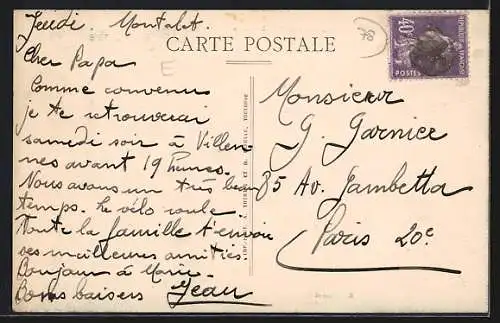 Jeudi. Montalet.
CARTE POSTALE
Cher Papa
Comme convenu
je te retrouverai
samedi soir à Villen-
nes avant 19 heures.
Nous avons un très beau
temps. le vélo roule.
Toute la famille t'envoie
ses meilleures amitiés
Bonjour à Marie.
Bons baisers Jean
78
E
40c
POSTES
Monsieur
G. Garnier
85 Av. Gambetta
Paris 20e